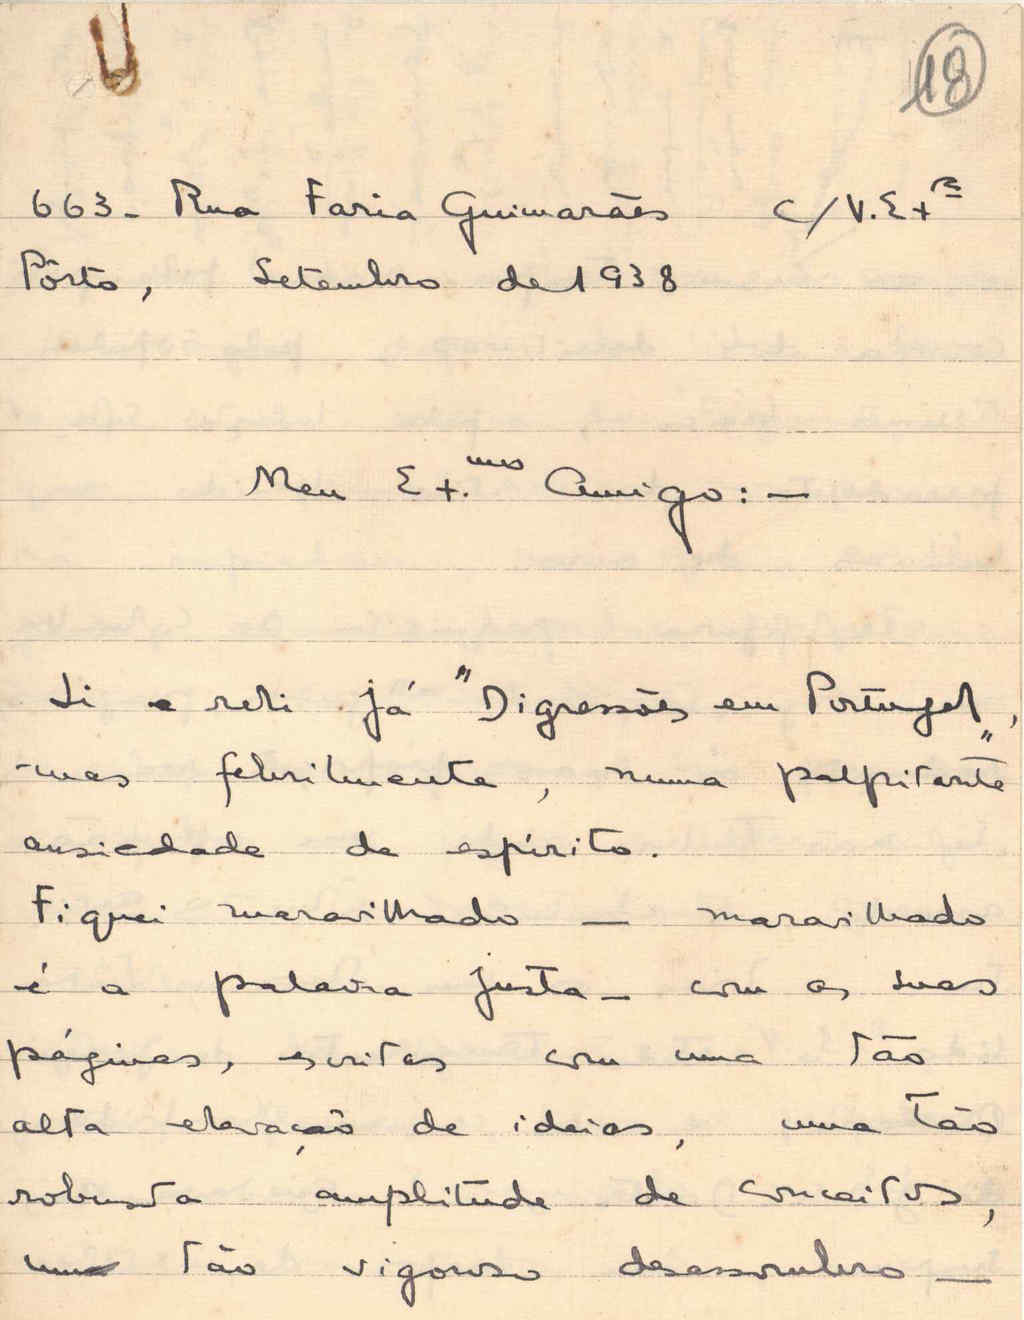 18
663 - Rua Faria Guimarães C/V. Ex.ª
Pôrto, Setembro de 1938
Meu Ex.mo Amigo: -
Li e reli já "Digressões em Portugal",
- mas febrilmente, numa palpitante
ansiedade de espírito.
Fiquei maravilhado - maravilhado
é a palavra justa - com as suas
páginas, escritas com uma tão
alta elevação de ideias, uma tão
robusta amplitude de conceitos,
um tão vigoroso desassombro -